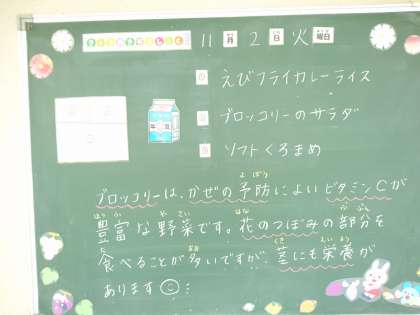 11月2日火曜日
えびフライカレーライス
ブロッコリーのサラダ
ソフトくろまめ
ブロッコリーは、かぜの予防によいビタミンCが
豊富な野菜です。花のつぼみの部分を
食べることが多いですが、茎にも栄養が
あります